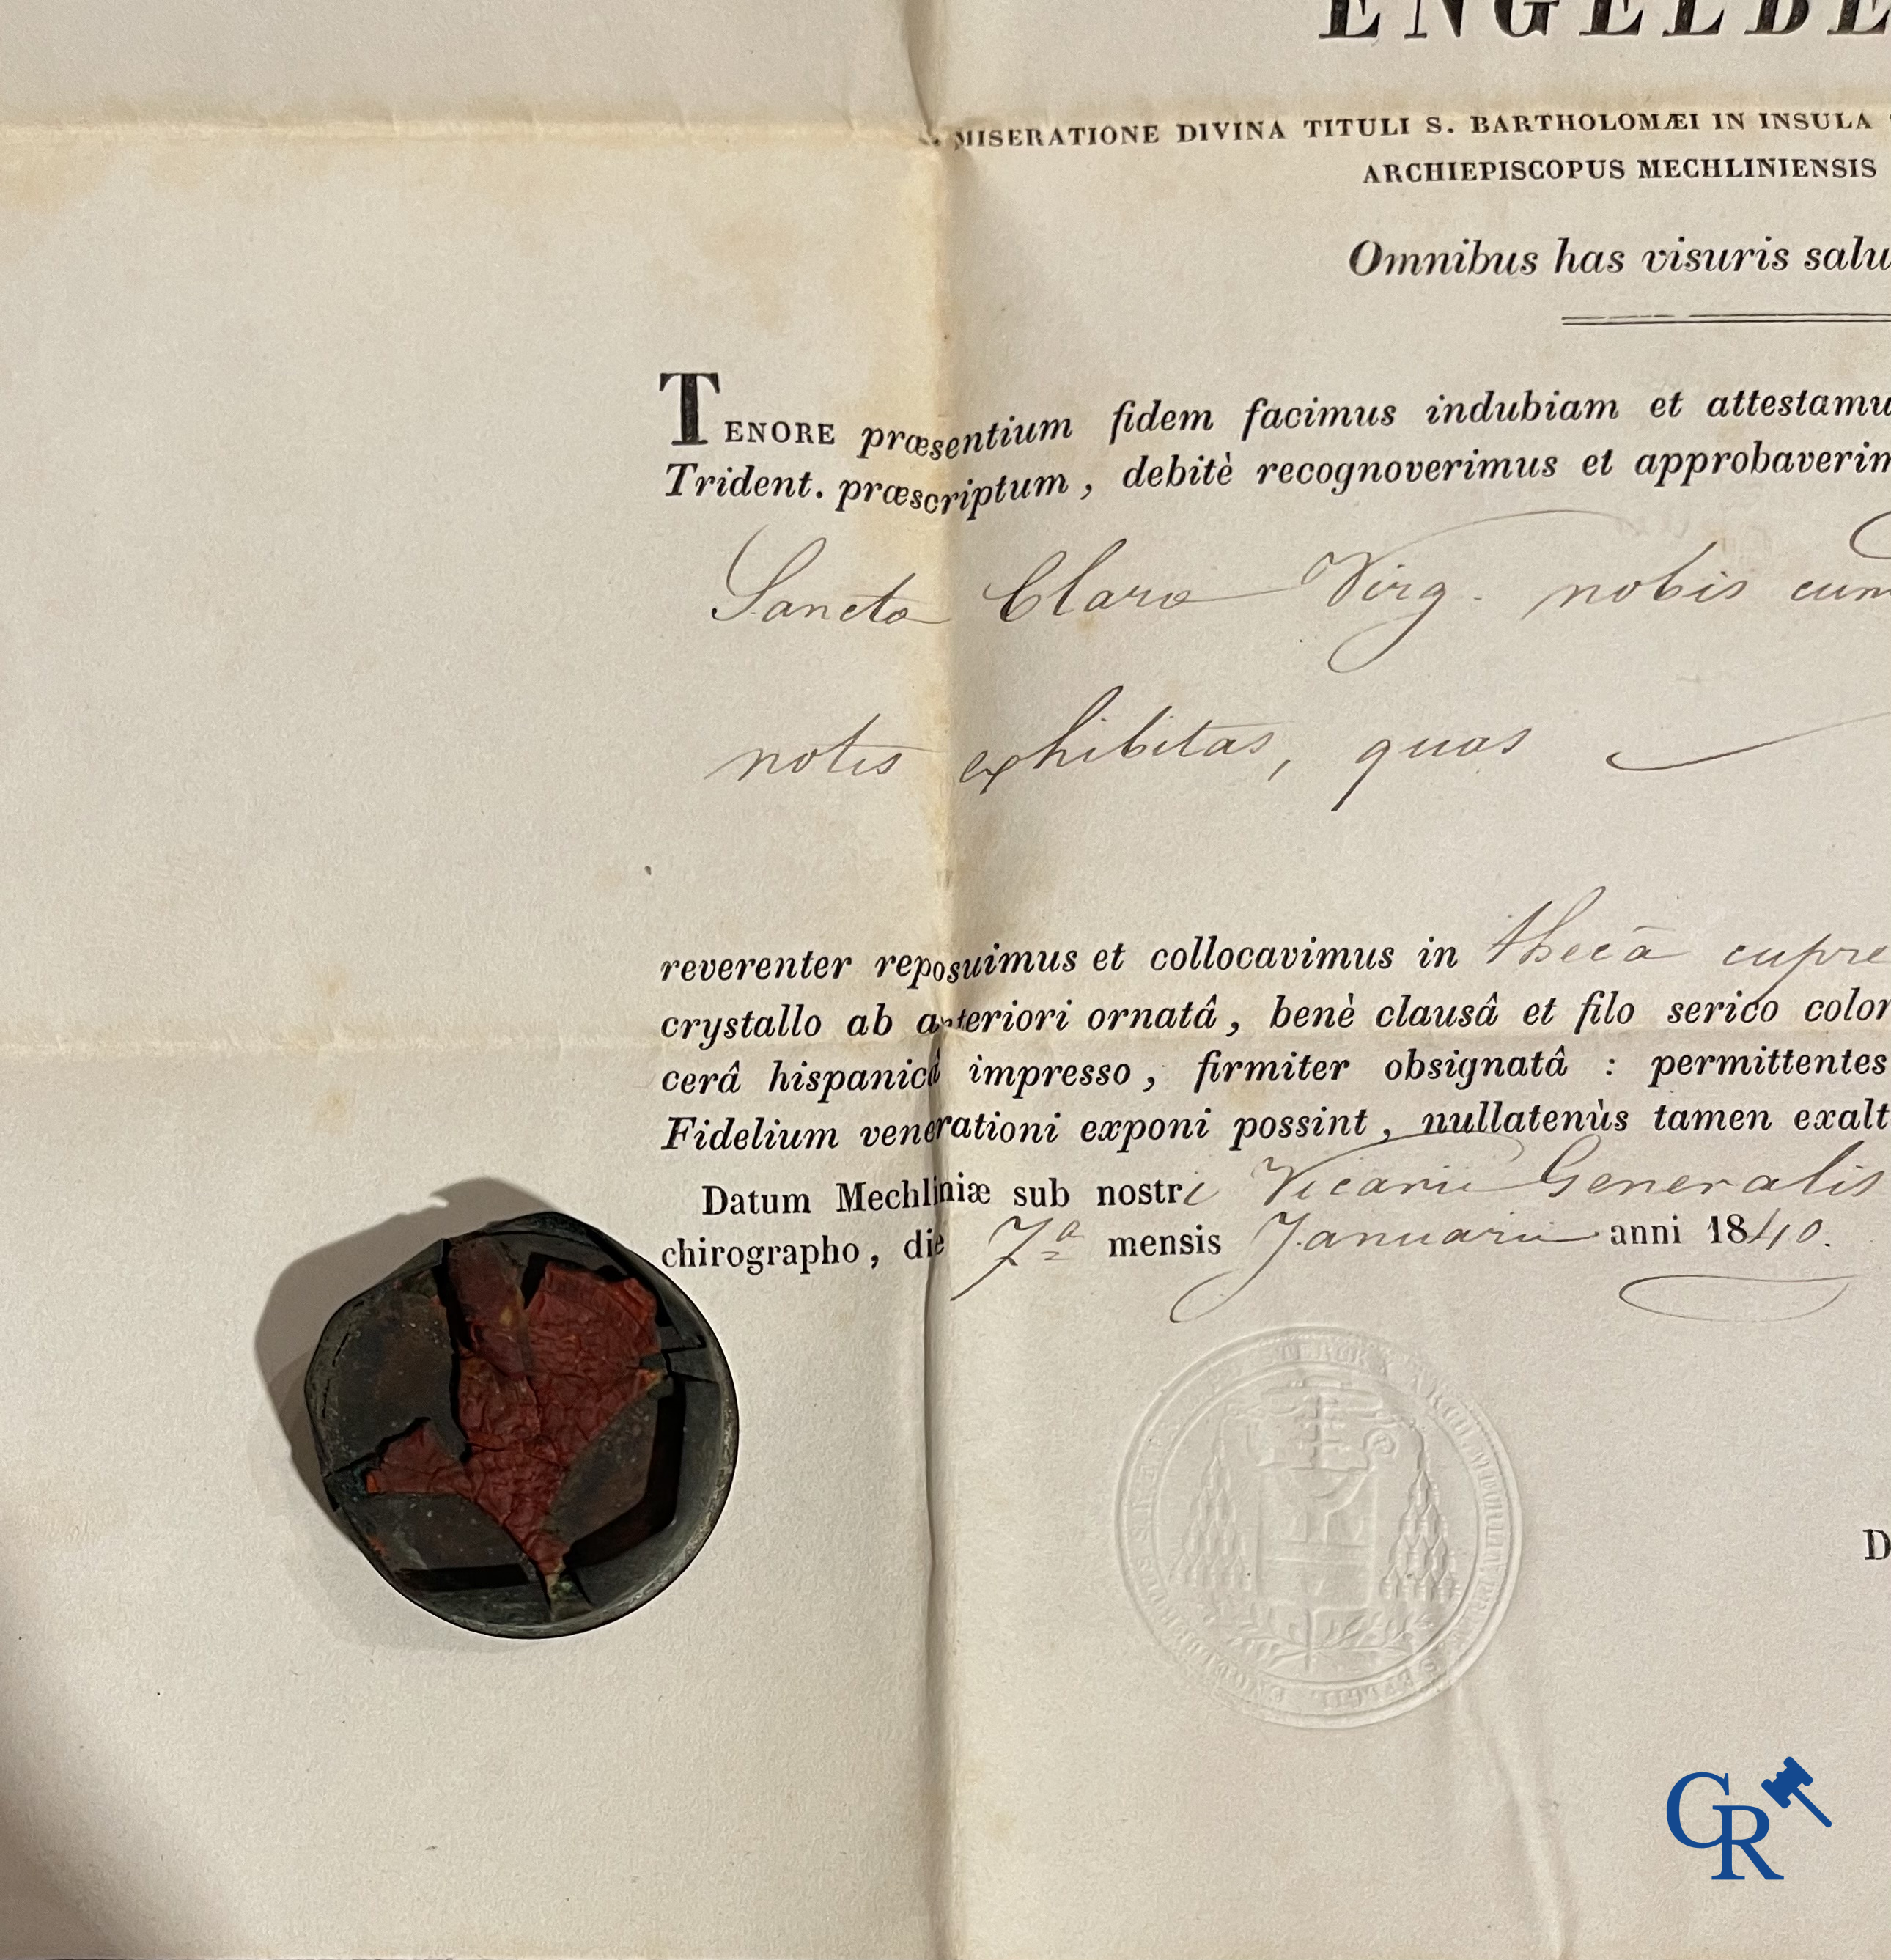 ENGELBE
MISERATIONE DIVINA TITULI S. BARTHOLOMÆI IN INSULA
ARCHIEPISCOPUS MECHLINIENSIS
Omnibus has visuris salu
TENORE præsentium fidem facimus indubiam et attestamu
Trident. præscriptum, debitè recognoverimus et approbaverim
Sancta Clara Virg. nobis cum
notis exhibitas, quas
reverenter reposuimus et collocavimus in thecâ cupre
crystallo ab anteriori ornatâ, benè clausâ et filo serico color
cerâ hispanicâ impresso, firmiter obsignatâ : permittentes
Fidelium venerationi exponi possint, nullatenùs tamen exalt
Datum Mechliniæ sub nostri Vicarii Generalis
chirographo, die 7ª mensis Januarii anni 1840.
D
CR